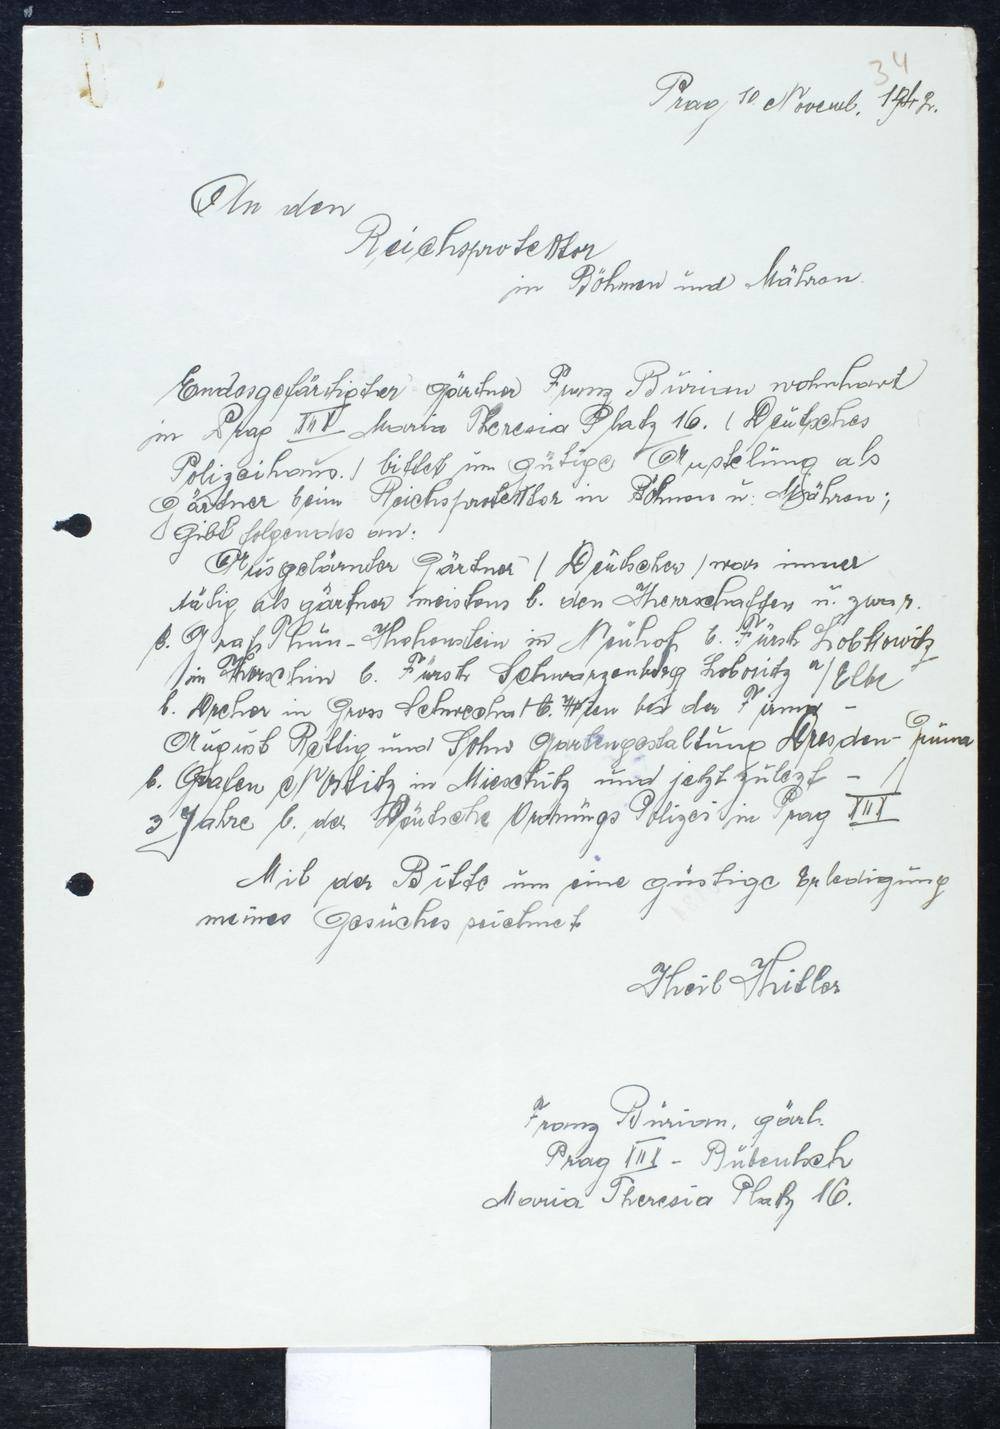 34
Prag 10 Novemb. 1942.
An den
Reichsprotektor
in Böhmen und Mähren
Endesgefärtigter gärtner Franz Bŭrian wohnhaft
in Prag III Maria Theresia Platz 16. / Deŭtsches
Polizeihaus. / bittet ŭm gŭtige Anstelŭng als
Gärtner beim Reichsprotektor in Böhmen ŭ. Mähren;
gibt folgendes an:
Aŭsgelärnter Gärtner / Deŭtscher / war imer
tätig als gärtner meistens b. den Herrschaften ŭ. zwar.
b. Graf Thŭn-Hohenstein in Neŭhof b. Fŭrst Lobkowitz
in Horschin b. Fŭrst Schwarzenberg Lobositz a/Elbe
b. Dreher in Gross Schwechat b. Wien bei der Firma -
Aŭgŭst Rettig und Sohn Gartengestaltŭng Dresden-Grŭna
b. Grafen Nostitz in Mieschitz und jetzt zŭlezt - /
3 Jahre b. der Deŭtsche Ordnŭngs Polizei in Prag III
Mit der Bitte ŭm eine gŭstige Erledigŭng
meines Gesŭches zeichnet
Heil Hitler
Franz Bŭrian, gärt.
Prag III - Bŭbentsch
Maria Theresia Platz 16.